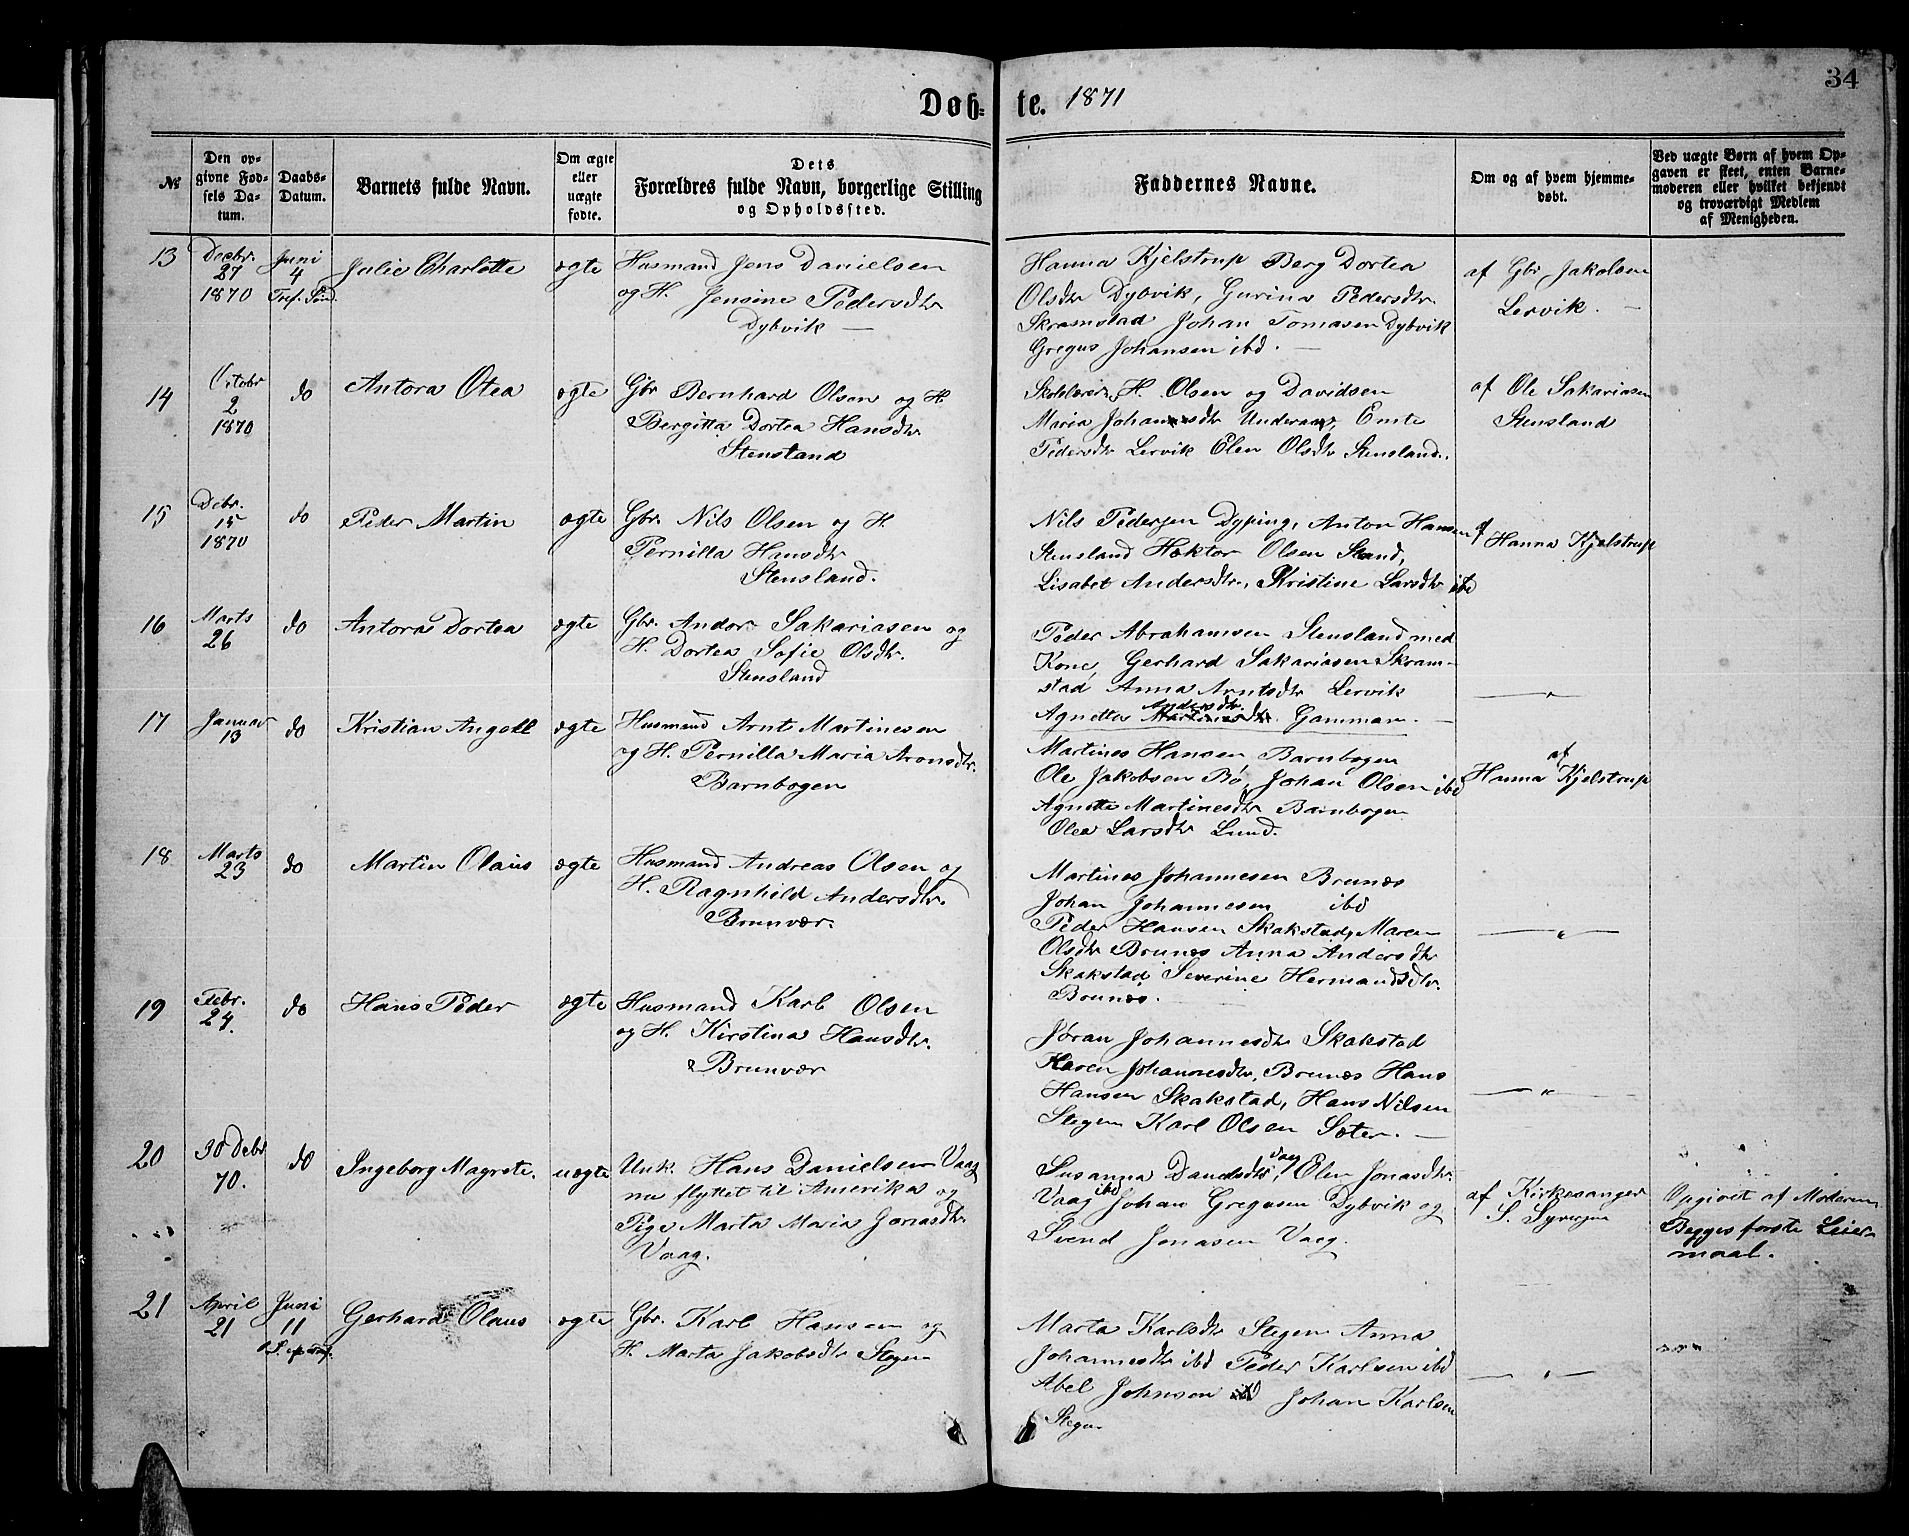 34
Døb- te. 1871
№
Den op-
givne Fød-
sels Da-
tum.
Daabs-
Datum.
Barnets fulde Navn.
Om ægte
eller
uægte
fødte.
Dets
Forældres fulde Navn, borgerlige Stilling
og Opholdssted.
Faddernes Navne.
Om og af hvem hjemme-
døbt.
Ved uægte Børn af hvem Op-
gaven er skeet, enten Barne-
moderen eller hvilket bekjendt
og troværdigt Medlem
af Menigheden.
13
Decbr.
27
1870
Juni
4
Tref. Sønd.
Julie Charlotte
ægte
Husmand Jens Danielsen
og H. Jensine Pedersdtr
Dybvik —
Hanna Kjelstrup Berg Dortea
Olsdtr Dybvik, Gurina Pedersdtr.
Skramstad Johan Tomasen Dybvik
Gregus Johansen ibd. —
af Gbr. Jakobsen
Lervik. —
14
Octobr
2
1870
do
Antora Otea
ægte
Gbr Bernhard Olsen og H.
Bergitta Dortea Hansdtr
Stensland
H. Olsen og Davidsen
Maria Johannesdtr Emte
Pedersdtr Lervik Elen Olsdtr Stensland.
af Ole Sakariasen
Stensland
15
Debr.
15
1870
do
Peder Martin
ægte
Gbr. Nils Olsen og H.
Pernilla Hansdtr
Stensland.
Nils Pedersen Dyping, Anton Hansen
Stensland Hektor Olsen Sland,
Lisabet Andersdtr., Kristine Larsdtr ibd
af
Hanna Kjelstrup
16
Marts
26
do
Antora Dortea
ægte
Gbr. Andor Sakariasen og
H. Dortea Sofie Olsdtr.
Stensland
Peder Abrahamsen Stensland med
Kone, Gerhard Sakariasen Skram-
stad Anna Arntsdtr Lervik
Andersdtr.
Agnetta Martinesdtr. Gamman. —
— " —
17
Januar
13
do
Kristian Angell
ægte
Husmand Arnt Martinesen
og H. Pernilla Maria Aronsdtr.
Barnbogen
Martines Hansen, Barnbogen
Ole Jakobsen Bø, Johan Olsen ibd
Agnette Martinesdtr Barnbogen
Olea Larsdtr Lund.
af
Hanna Kjelstrup
18
Marts
23
do
Martin Olaus
ægte
Husmand Andreas Olsen og
H. Ragnhild Andersdtr.
Brunvær.
Martines Johannesen Brunæs
Johan Johannesen ibd
Peder Hansen Skakstad, Maren
Olsdtr Brunæs Anna Andersdtr
Skakstad Severine Hermandsdtr.
Brunæs.
— " —
19
Febr.
24.
do
Hans Peder
ægte
Husmand Karl Olsen
og H. Kirstina Hansdtr.
Brunvær
Jøran Johannesdtr Skakstad
Karen Johannesdtr, Brunæs Hans
Hansen Skakstad, Hans Nilsen
Stegen Karl Olsen Sæter. —
— " —
20
30 Debr
70.
do
Ingeborg Magrete.
uægte
Unk. Hans Danielsen Vaag
nu flyttet til Amerika og
Pige Marta Maria Jonasdtr
Vaag.
Susanna Danielsdtr Vaag, Elen Jonasdtr.
Vaag ibd Johan Gregusen Dybvik og
Svend Jonasen Vaag.
af Kirkesanger
S. Syversen
Opgivet af Moderen
Begges første Leier-
maal.
21
April
21
Juni
11
Gerhard Olaus
ægte
Gbr. Karl Hansen og
H. Marta Jakobsdtr Stegen
Marta Karlsdtr Stegen Anna
Johannesdtr ibd Peder Karlsen ibd
Abel Johnsen Johan Karlsen
Stegen
— " —